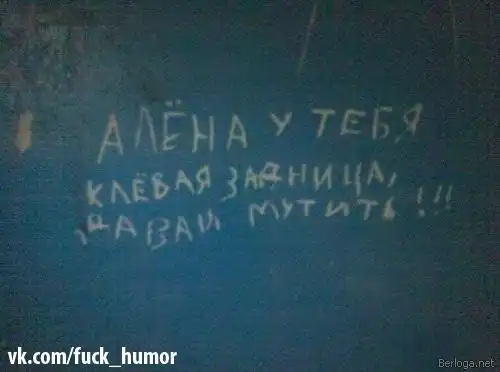 АЛЁНА У ТЕБЯ
КЛЁВАЯ ЗАДНИЦА,
ДАВАЙ МУТИТЬ!!!
vk.com/fuck_humor
Berloga.net